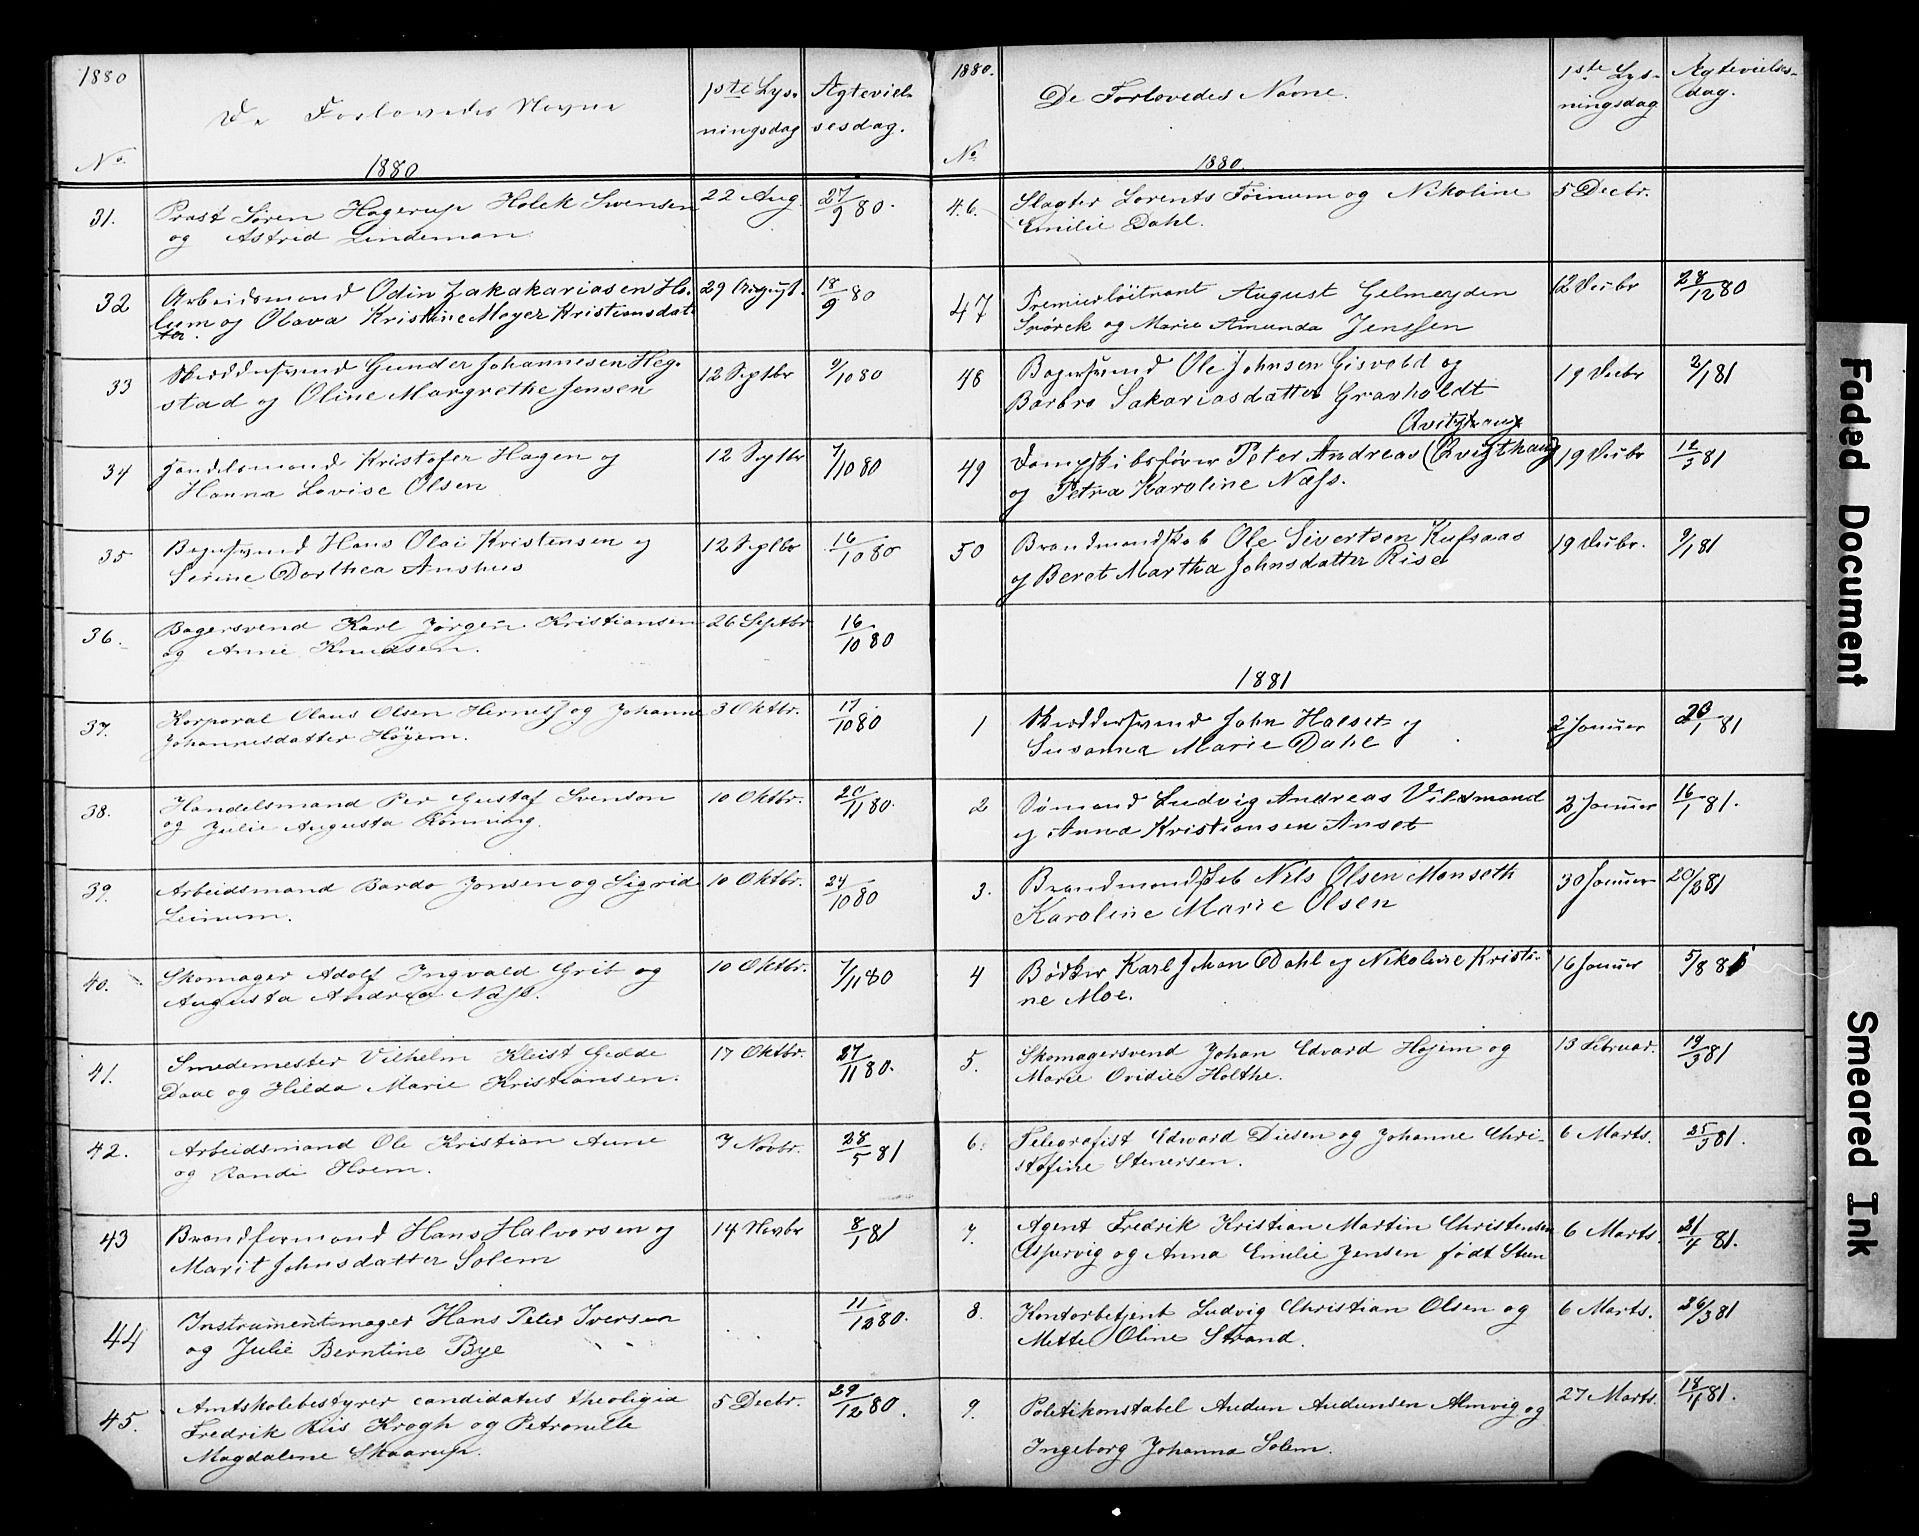 1880
De Forlovedes Navne
1ste Lys-
ningsdag
Ægteviel-
sesdag.
No.
1880
31.
Prost Søren Hagerup Holck Svensen
og Astrid Lindeman
22 Aug.
27/9 80.
32
Arbeidsmand Odin Zakakariasen Ho-
lum og Olava Kristine Meyer Kristiansdat-
ter.
29 August.
18/9 80
33
Skræddersvend Gunder Johannesen Heg-
stad og Oline Margrethe Jensen
12 Septbr
9/10 80
34
Handelsmand Kristofer Hagen og
Hanna Lovise Olsen
12 Septbr
7/10 80
35
Bagersvend Hans Olai Kristensen og
Serine Dorthea Aushus
12 Septbr
16/10 80
36.
Bagersvend Karl Jørgen Kristiansen
og Anne Knudsen.
26 Septbr
16/10 80
37.
Korporal Olaus Olsen Herness og Johanne
Johannesdatter Høyem.
3 Oktbr.
17/10 80
38.
Handelsmand Per Gustaf Svenson
og Julie Augusta Rønning.
10 Oktbr.
20/11 80.
39.
Arbeidsmand Bardo Jonsen og Sigrid
Leinum.
10 Oktbr.
24/10 80
40.
Skomager Adolf Ingvald Grit og
Augusta Andrea Næss.
10 Oktbr.
7/11 80
41.
Smedemester Vilhelm Kleist Gedde
Daae og Hilda Marie Kristiansen.
17 Oktbr.
27/11 80.
42.
Arbeidsmand Ole Kristian Aune
og Randi Hoem.
7 Novbr.
28/5 81
43
Brandformand Hans Halvorsen og
Marit Johnsdatter Solem
14 Novbr
8/1 81
44
Instrumentmager Hans Peter Iversen
og Julie Berntine Bye
11/12 80.
45.
Amtskolebestyrer candidatus theoligia
Fredrik Riis Krogh og Petronille
Magdalene Skaarup.
5 Decbr.
29/12 80.
1880.
De Forlovedes Navne.
1ste Lys-
ningsdag
Ægtevielses-
dag.
No
1880.
46.
Slagter Lorents Føinum og Nikoline
Emilie Dahl.
5 Decbr.
47
Premierløitnant August Gelmeyden
Spörck og Marie Amunda Jenssen
12 Decbr
28/12 80
48
Bagersvend Ole Johnsen Gisvold og
Barbro Sakariasdatter Gravholdt
19 Decbr
2/1 81
Qvitzhaug
49
Dampskibsfører Peter Andreas (Qvigthaug
og Petra Karoline Næss.
19 Decbr
12/3 81
50
Brandmandskab Ole Sivertsen Kufsaas
og Beret Martha Johnsdatter Rise
19 Decbr.
9/1 81
1881
1
Skræddersvend John Halset og
Susanna Marie Dahl
2 Januar
20/1 81
2
Sømand Ludvig Andreas Vildmand
og Anna Kristiansen Anset
2 Januar
16/1 81.
3.
Brandmandskab Nils Olsen Monseth
Karoline Marie Olsen
30 Januar
20/3 81
4
Bødker Karl Johan Dahl og Nikoline Kristi-
ne Moe.
16 Januar
5/8 81
5.
Skomagersvend Johan Edvard Hojem og
Marie Ovidie Holthe.
13 Februar.
19/3 81
6.
Telegrafist Edward Diesen og Johanne Chri-
stofine Stenersen.
6 Marts.
25/3 81.
7.
Agent Fredrik Kristian Martin Christensen
Aspervig og Anna Emilie Jensen født Steen
6 Marts.
21/4 81.
8.
Kontorbetjent Ludvig Christian Olsen og
Mette Oline Strand.
6 Marts.
26/3 81
9.
Politikonstabel Audun Audunsen Almvig og
Ingeborg Johanna Solem.
27 Marts.
18/4 81.
Faded Document
Smeared Ink